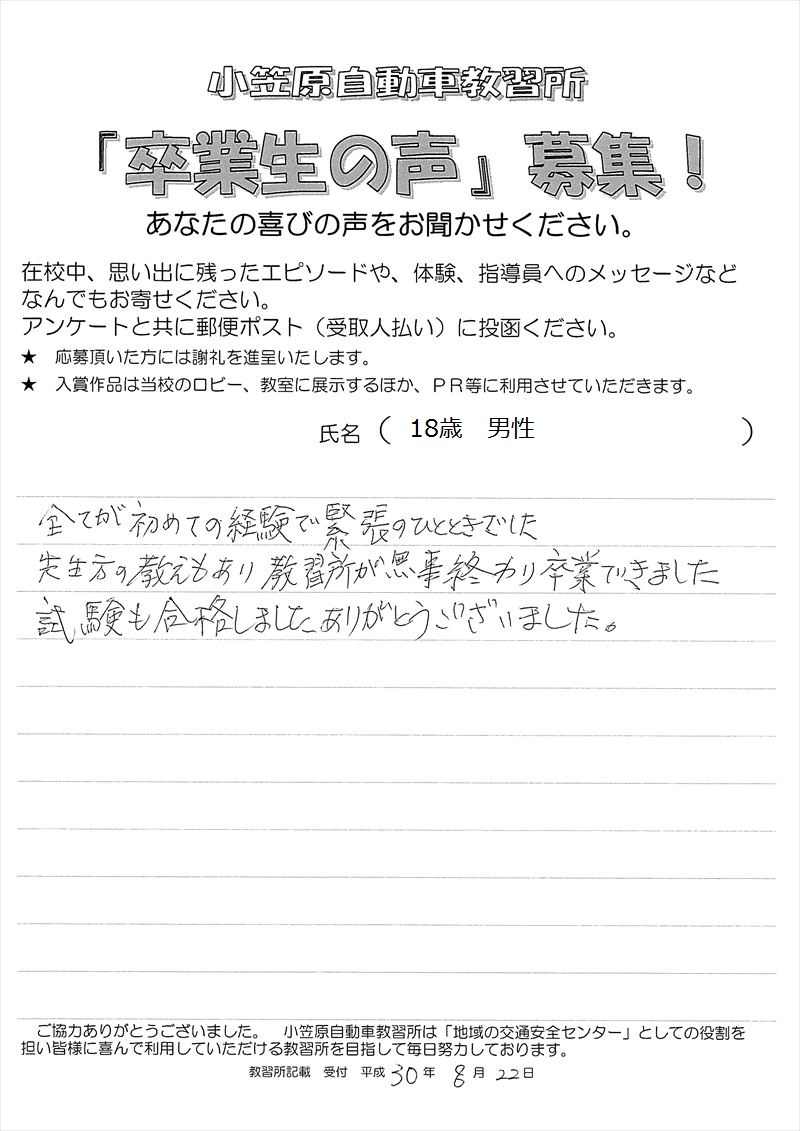 小笠原自動車教習所
『卒業生の声』募集！
あなたの喜びの声をお聞かせください。
在校中、思い出に残ったエピソードや、体験、指導員へのメッセージなど
なんでもお寄せください。
アンケートと共に郵便ポスト（受取人払い）に投函ください。
★　応募頂いた方には謝礼を進呈いたします。
★　入賞作品は当校のロビー、教室に展示するほか、ＰＲ等に利用させていただきます。
氏名（　18歳　男性　）
全てが初めての経験で緊張のひとときでした
先生方の教えもあり教習所が無事終わり卒業できました
試験も合格しましたありがとうございました。
ご協力ありがとうございました。　小笠原自動車教習所は「地域の交通安全センター」としての役割を
担い皆様に喜んで利用していただける教習所を目指して毎日努力しております。
教習所記載　受付　平成 30 年 8 月 22 日